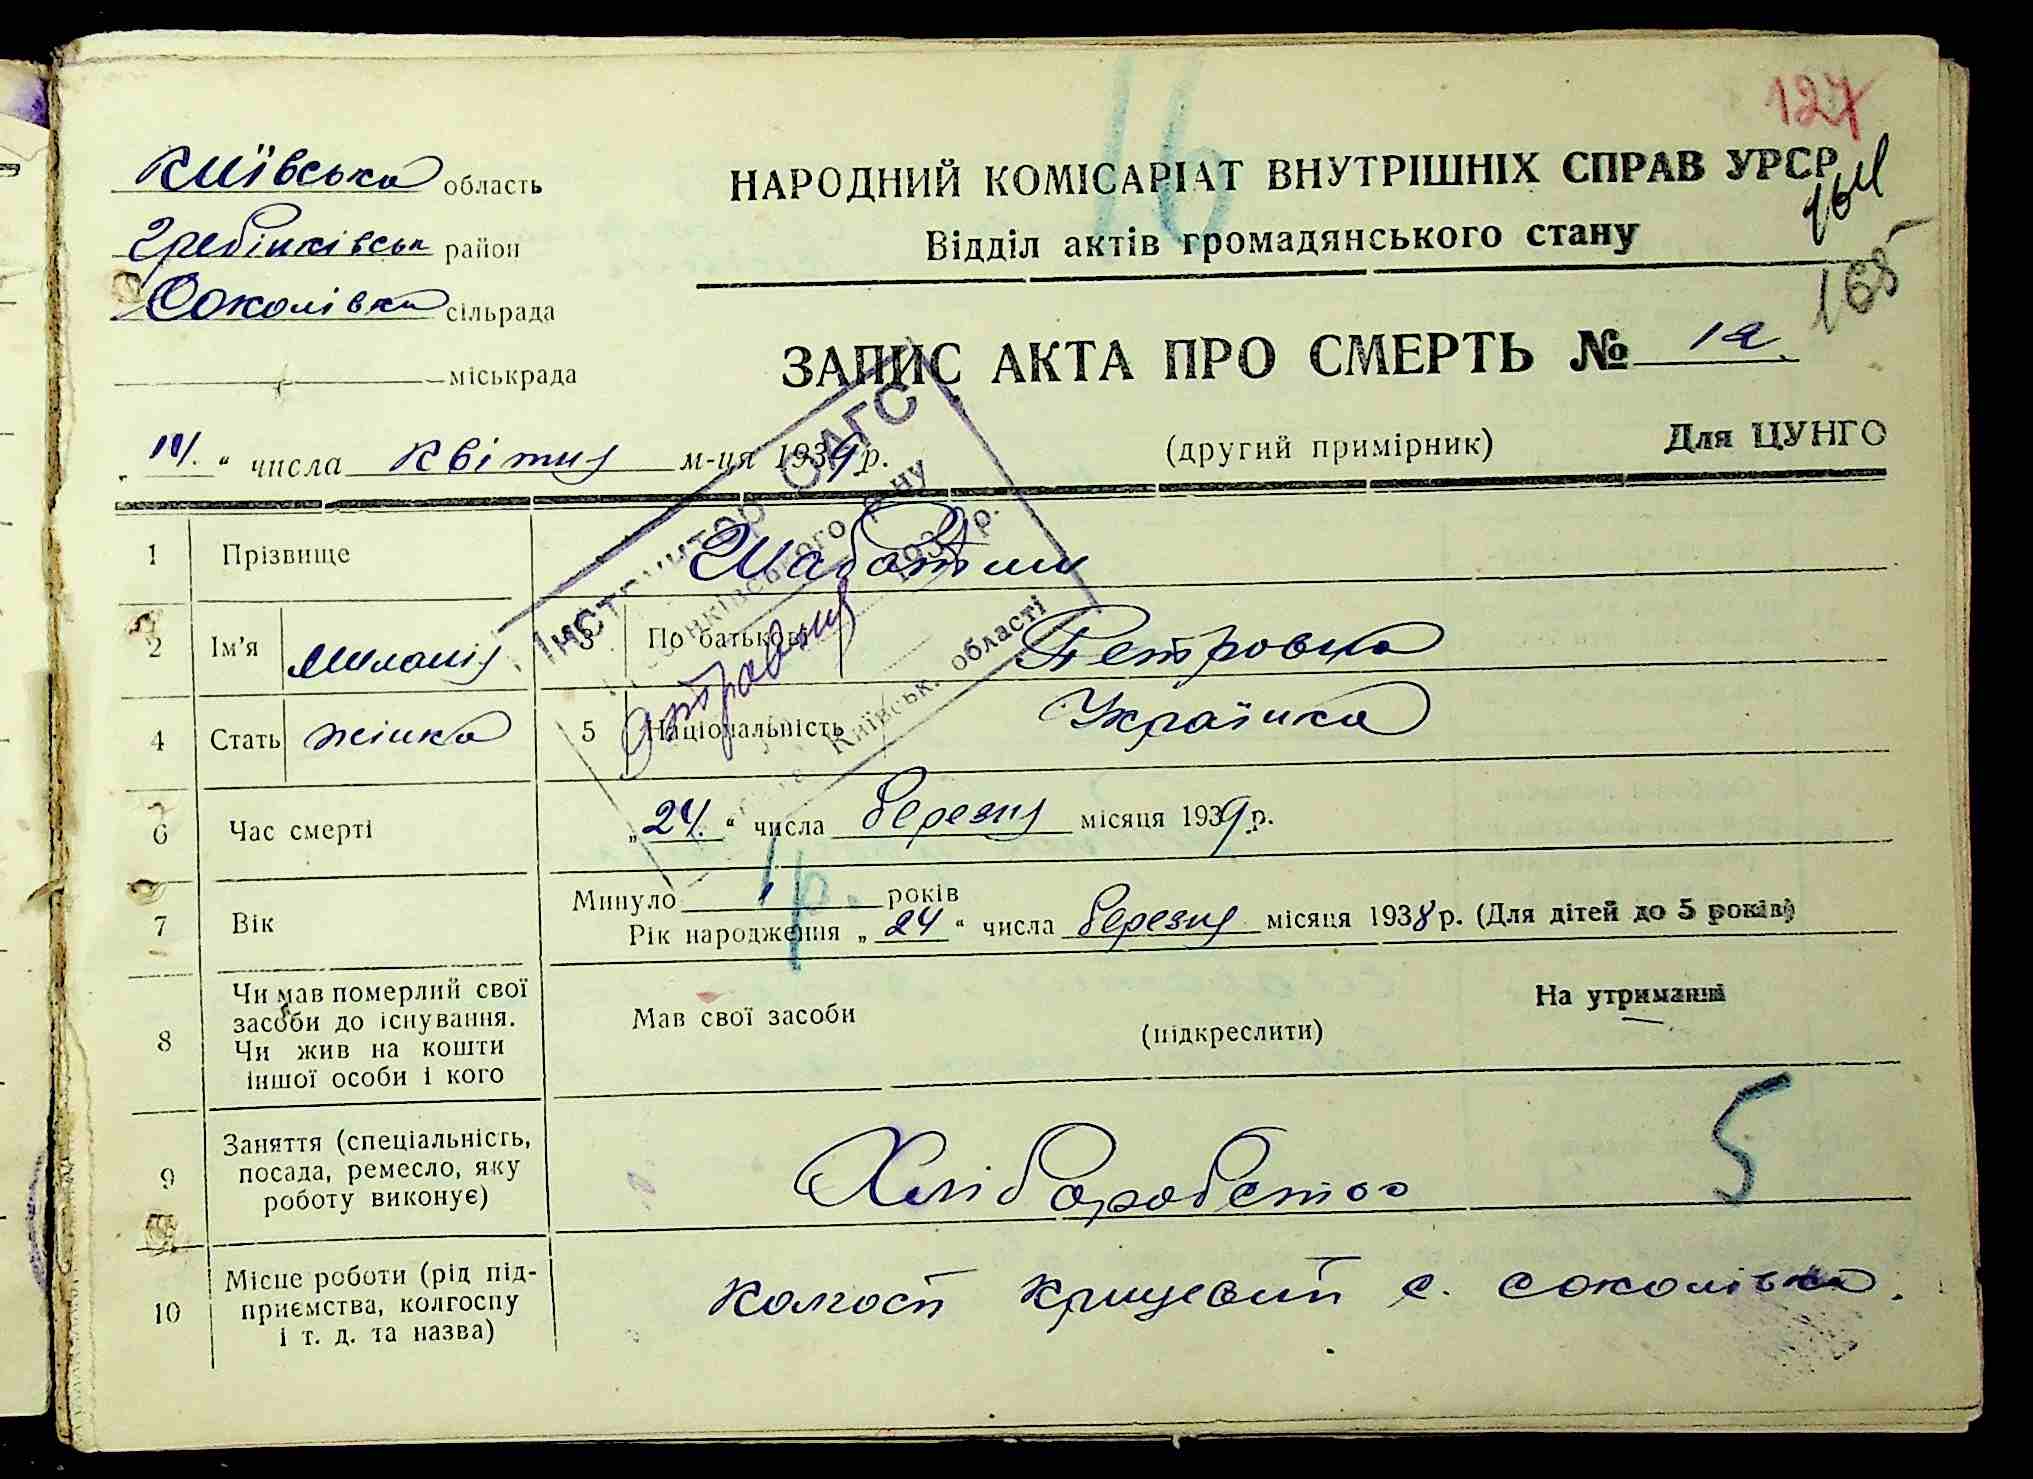 16
127
Київська область
Гребінківськ район
Соколівка сільрада
міськрада
НАРОДНИЙ КОМІСАРІАТ ВНУТРІШНІХ СПРАВ УРСР
Відділ актів громадянського стану
165
ЗАПИС АКТА ПРО СМЕРТЬ №
„ 14. “ числа квітня м-ця 1939 р.
(другий примірник)
Для ЦУНГО
Інструктор ОАГС
193 р.
Київськ. області
1 Прізвище Шабатин
2 Ім’я Миланія 3 По батькові Петровна
4 Стать жінка 5 Національність Українка
6 Час смерті „24.“ числа березня місяця 1939 р.
1 р.
7 Вік Минуло 1 років
Рік народження „ 24 “ числа березня місяця 1938 р. (Для дітей до 5 років)
8 Чи мав померлий свої
засоби до існування.
Чи жив на кошти
іншої особи і кого
Мав свої засоби (підкреслити) На утриманні
5
9 Заняття (спеціальність,
посада, ремесло, яку
роботу виконує)
Хліборобство
10 Місце роботи (рід під-
приємства, колгоспу
і т. д. та назва)
колгосп с. Соколівка.